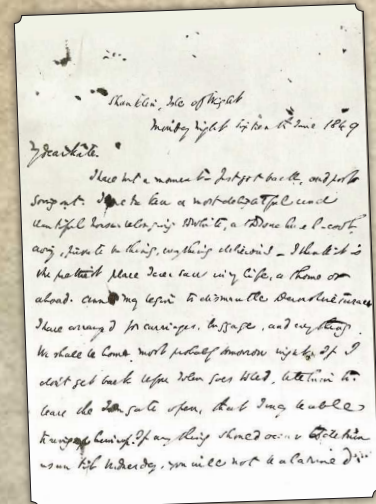 Shanklin, Isle of Wight
Monday Night Sixteenth June 1849
My dear Kate.
I have but a moment. Just got back, and post
going out. I have taken a most delightful and
beautiful house belonging to White, at Bonchurch - cool
airy, private bathing, everything delicious - I think it is
the prettiest place I ever saw in my life, at home or
abroad. Anne may begin to dismantle Devonshire Terrace
I have arranged for carriages, luggage, and everything.
We shall be home most probably tomorrow night. If I
don't get back before John goes to bed, tell him to
leave the gate open, that I may be able
to ring him up. If any thing should occur to detain
us until Wednesday, you will not be alarmed